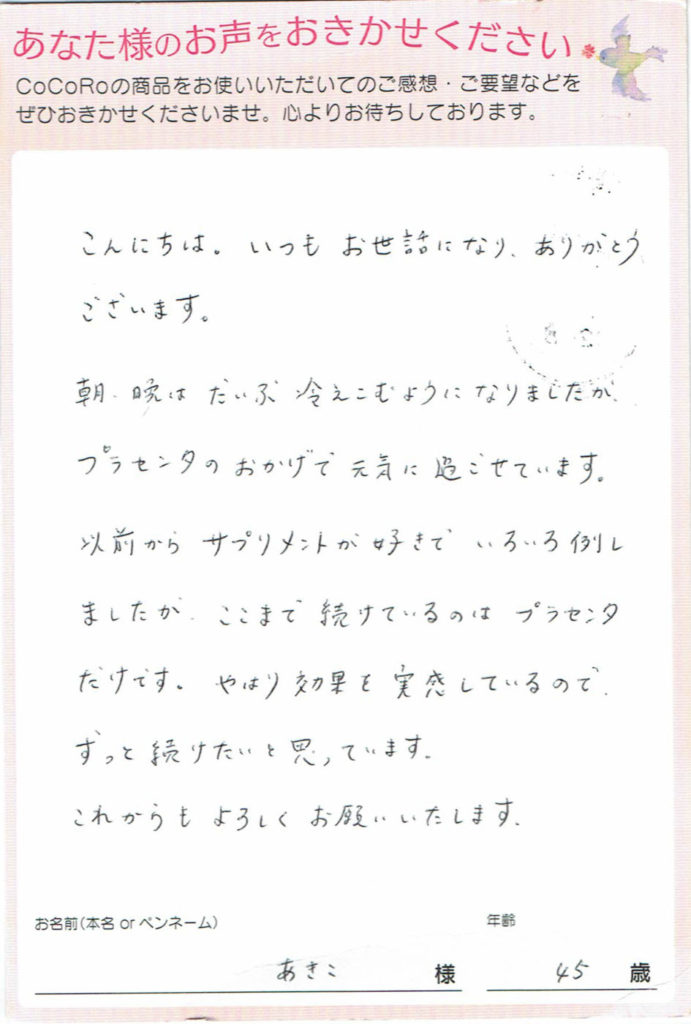 あなた様のお声をおきかせください
CoCoRoの商品をお使いいただいてのご感想・ご要望などを
ぜひおきかせくださいませ。心よりお待ちしております。
こんにちは。いつも お世話になり、ありがとう
ございます。
朝、晩は だいぶ 冷えこむようになりましたが、
プラセンタのおかげで 元気に過ごせています。
以前から サプリメントが好きで いろいろ例し
ましたが、ここまで 続けているのは プラセンタ
だけです。やはり 効果を 実感しているので、
ずっと 続けたいと思っています。
これからも よろしく お願いいたします。
お名前(本名 or ペンネーム)
年齢
あきこ 様 45 歳